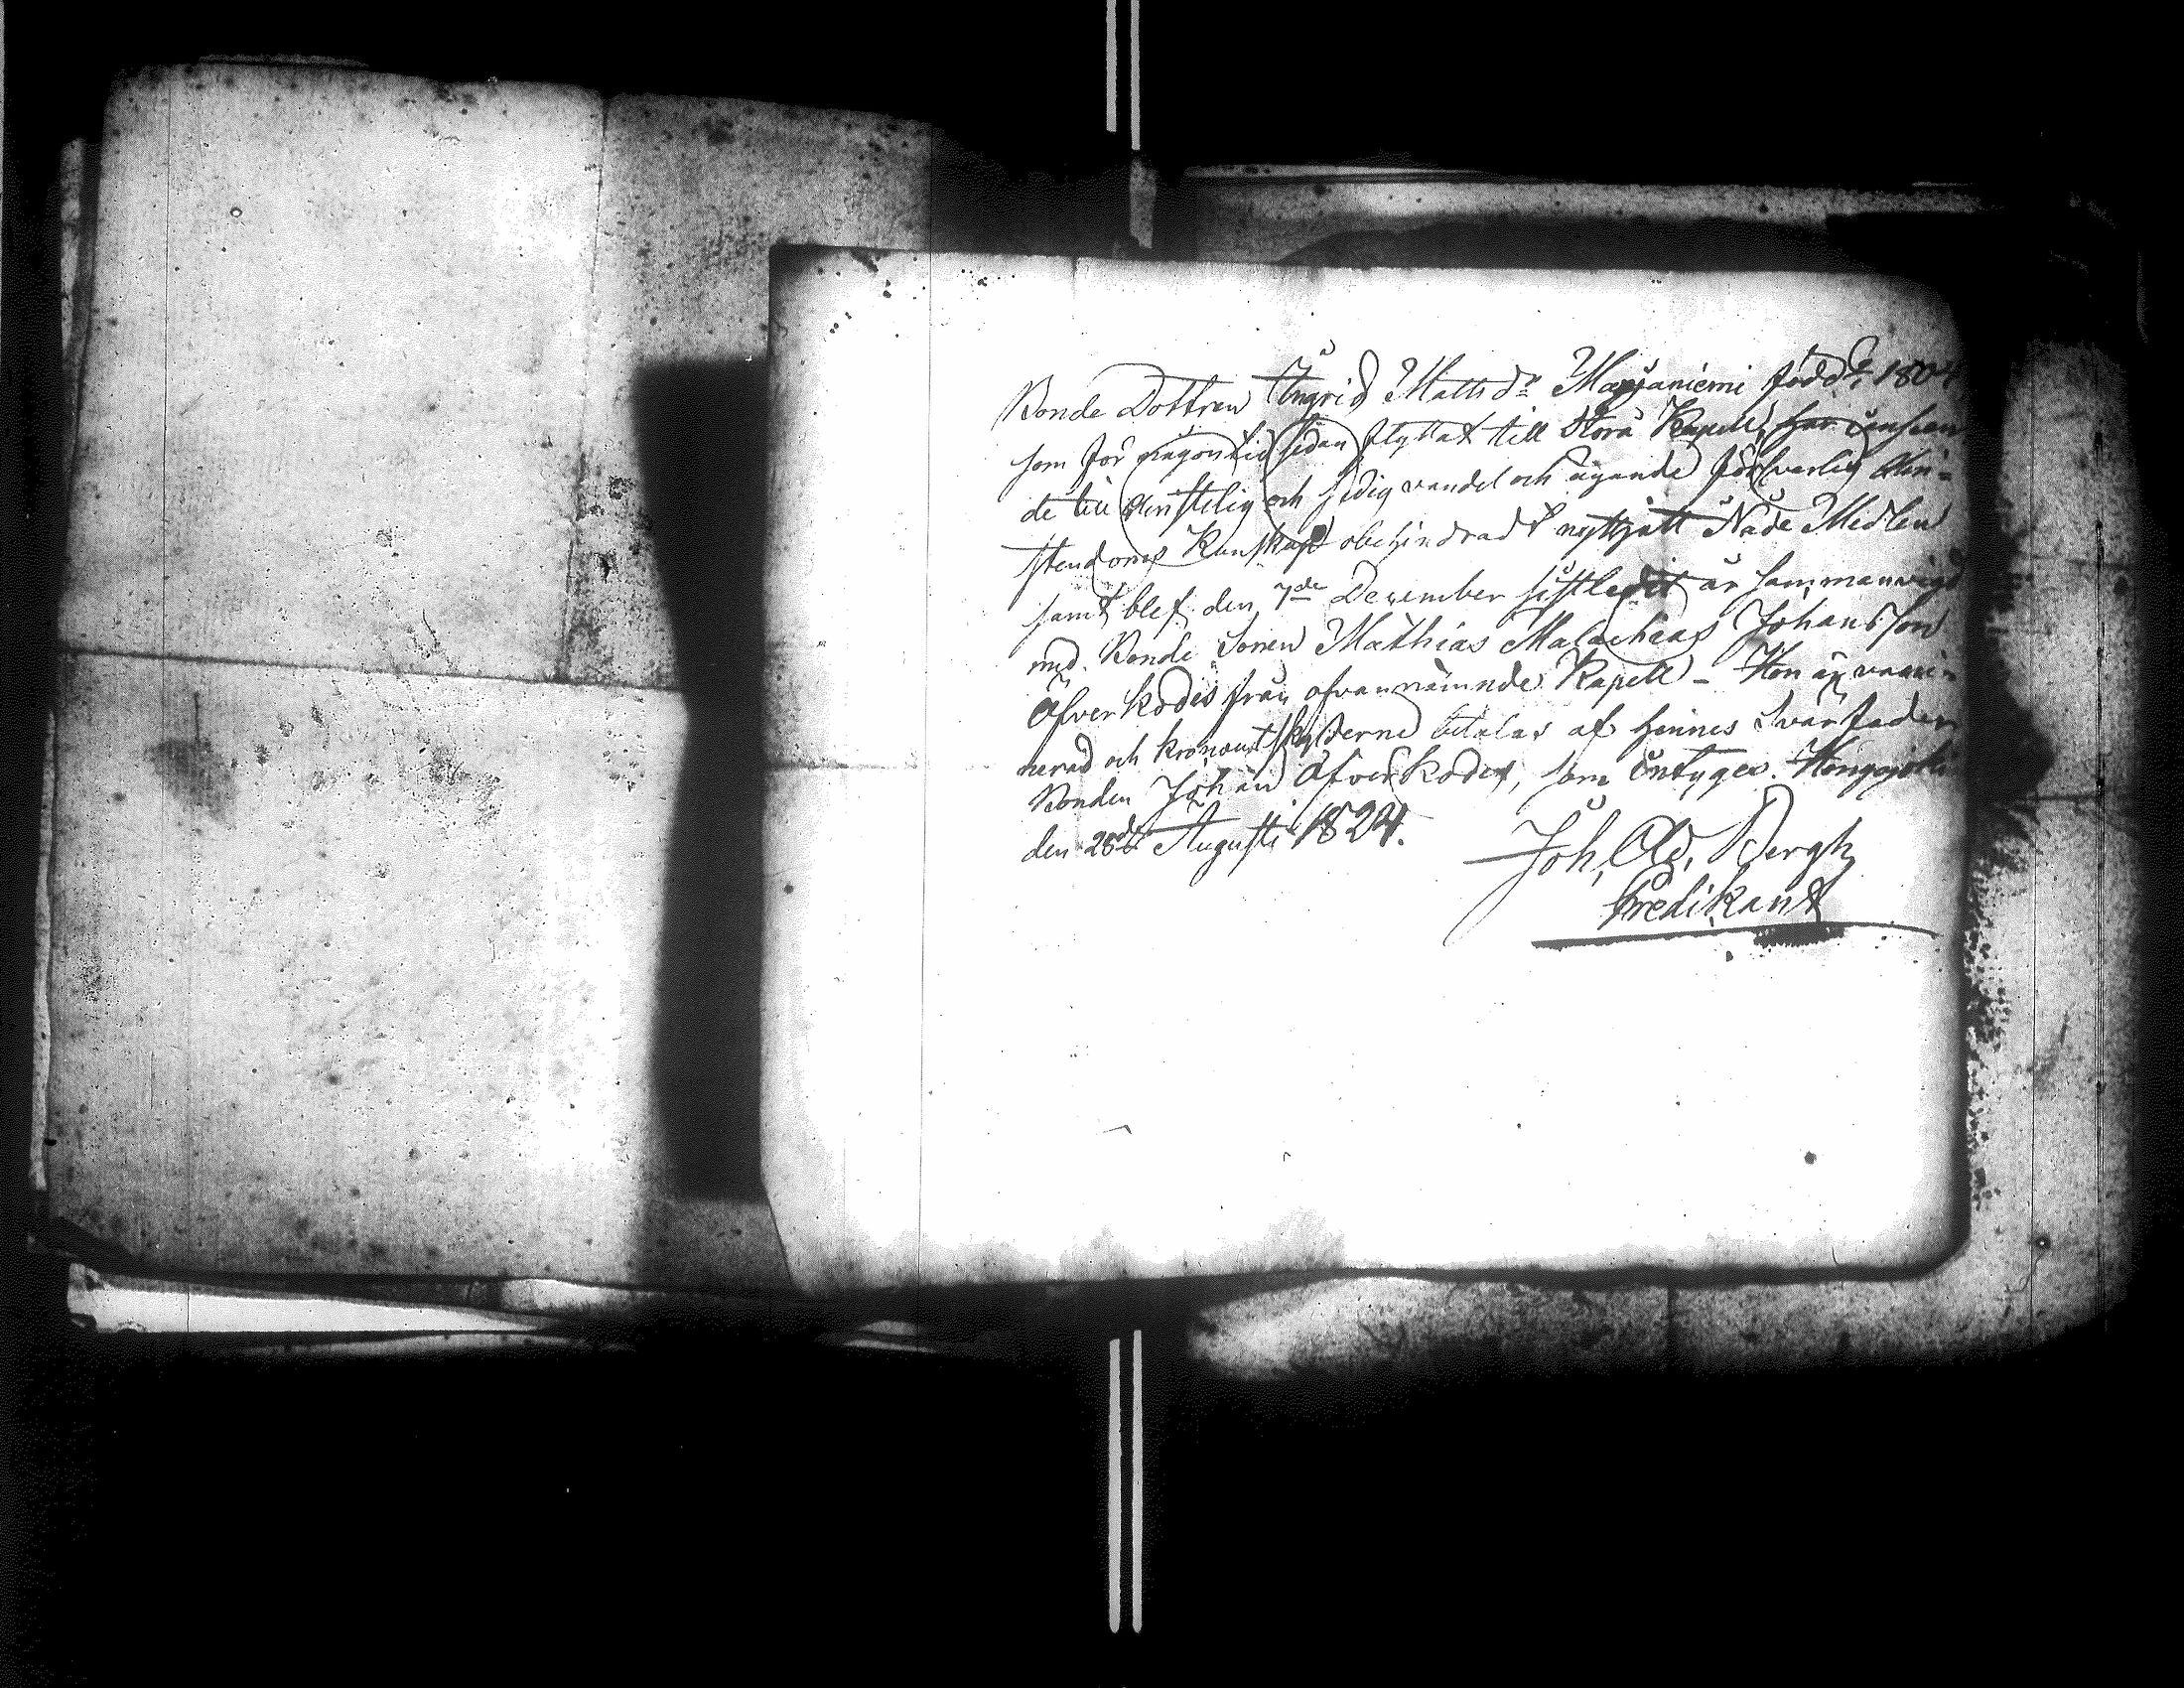 Bonde Dottren Ingrid Mattsdr Marjaniemi född 1804
som för någon tid sedan flyttat till Storå Kapell, har under
de till christelig och sedig vandel och ägande försvarlig Chri-
stendoms Kunskap obehindradt nyttjatt Nåde Medlen
samt blef den 7de December sistledit år samman vigd
med Bonde Sonen Mathias Malachias Johansson
Öfver Kodis från ofvannämnde Kapell - Hon är vacci-
nerad och kronoutskylderne betalas af hennes Svärfader
Bonden Johan Öfver Kodes, som intyges. Hongojoki
den 28de Augusti 1824.
Joh, Ad, Bergh
Predikant